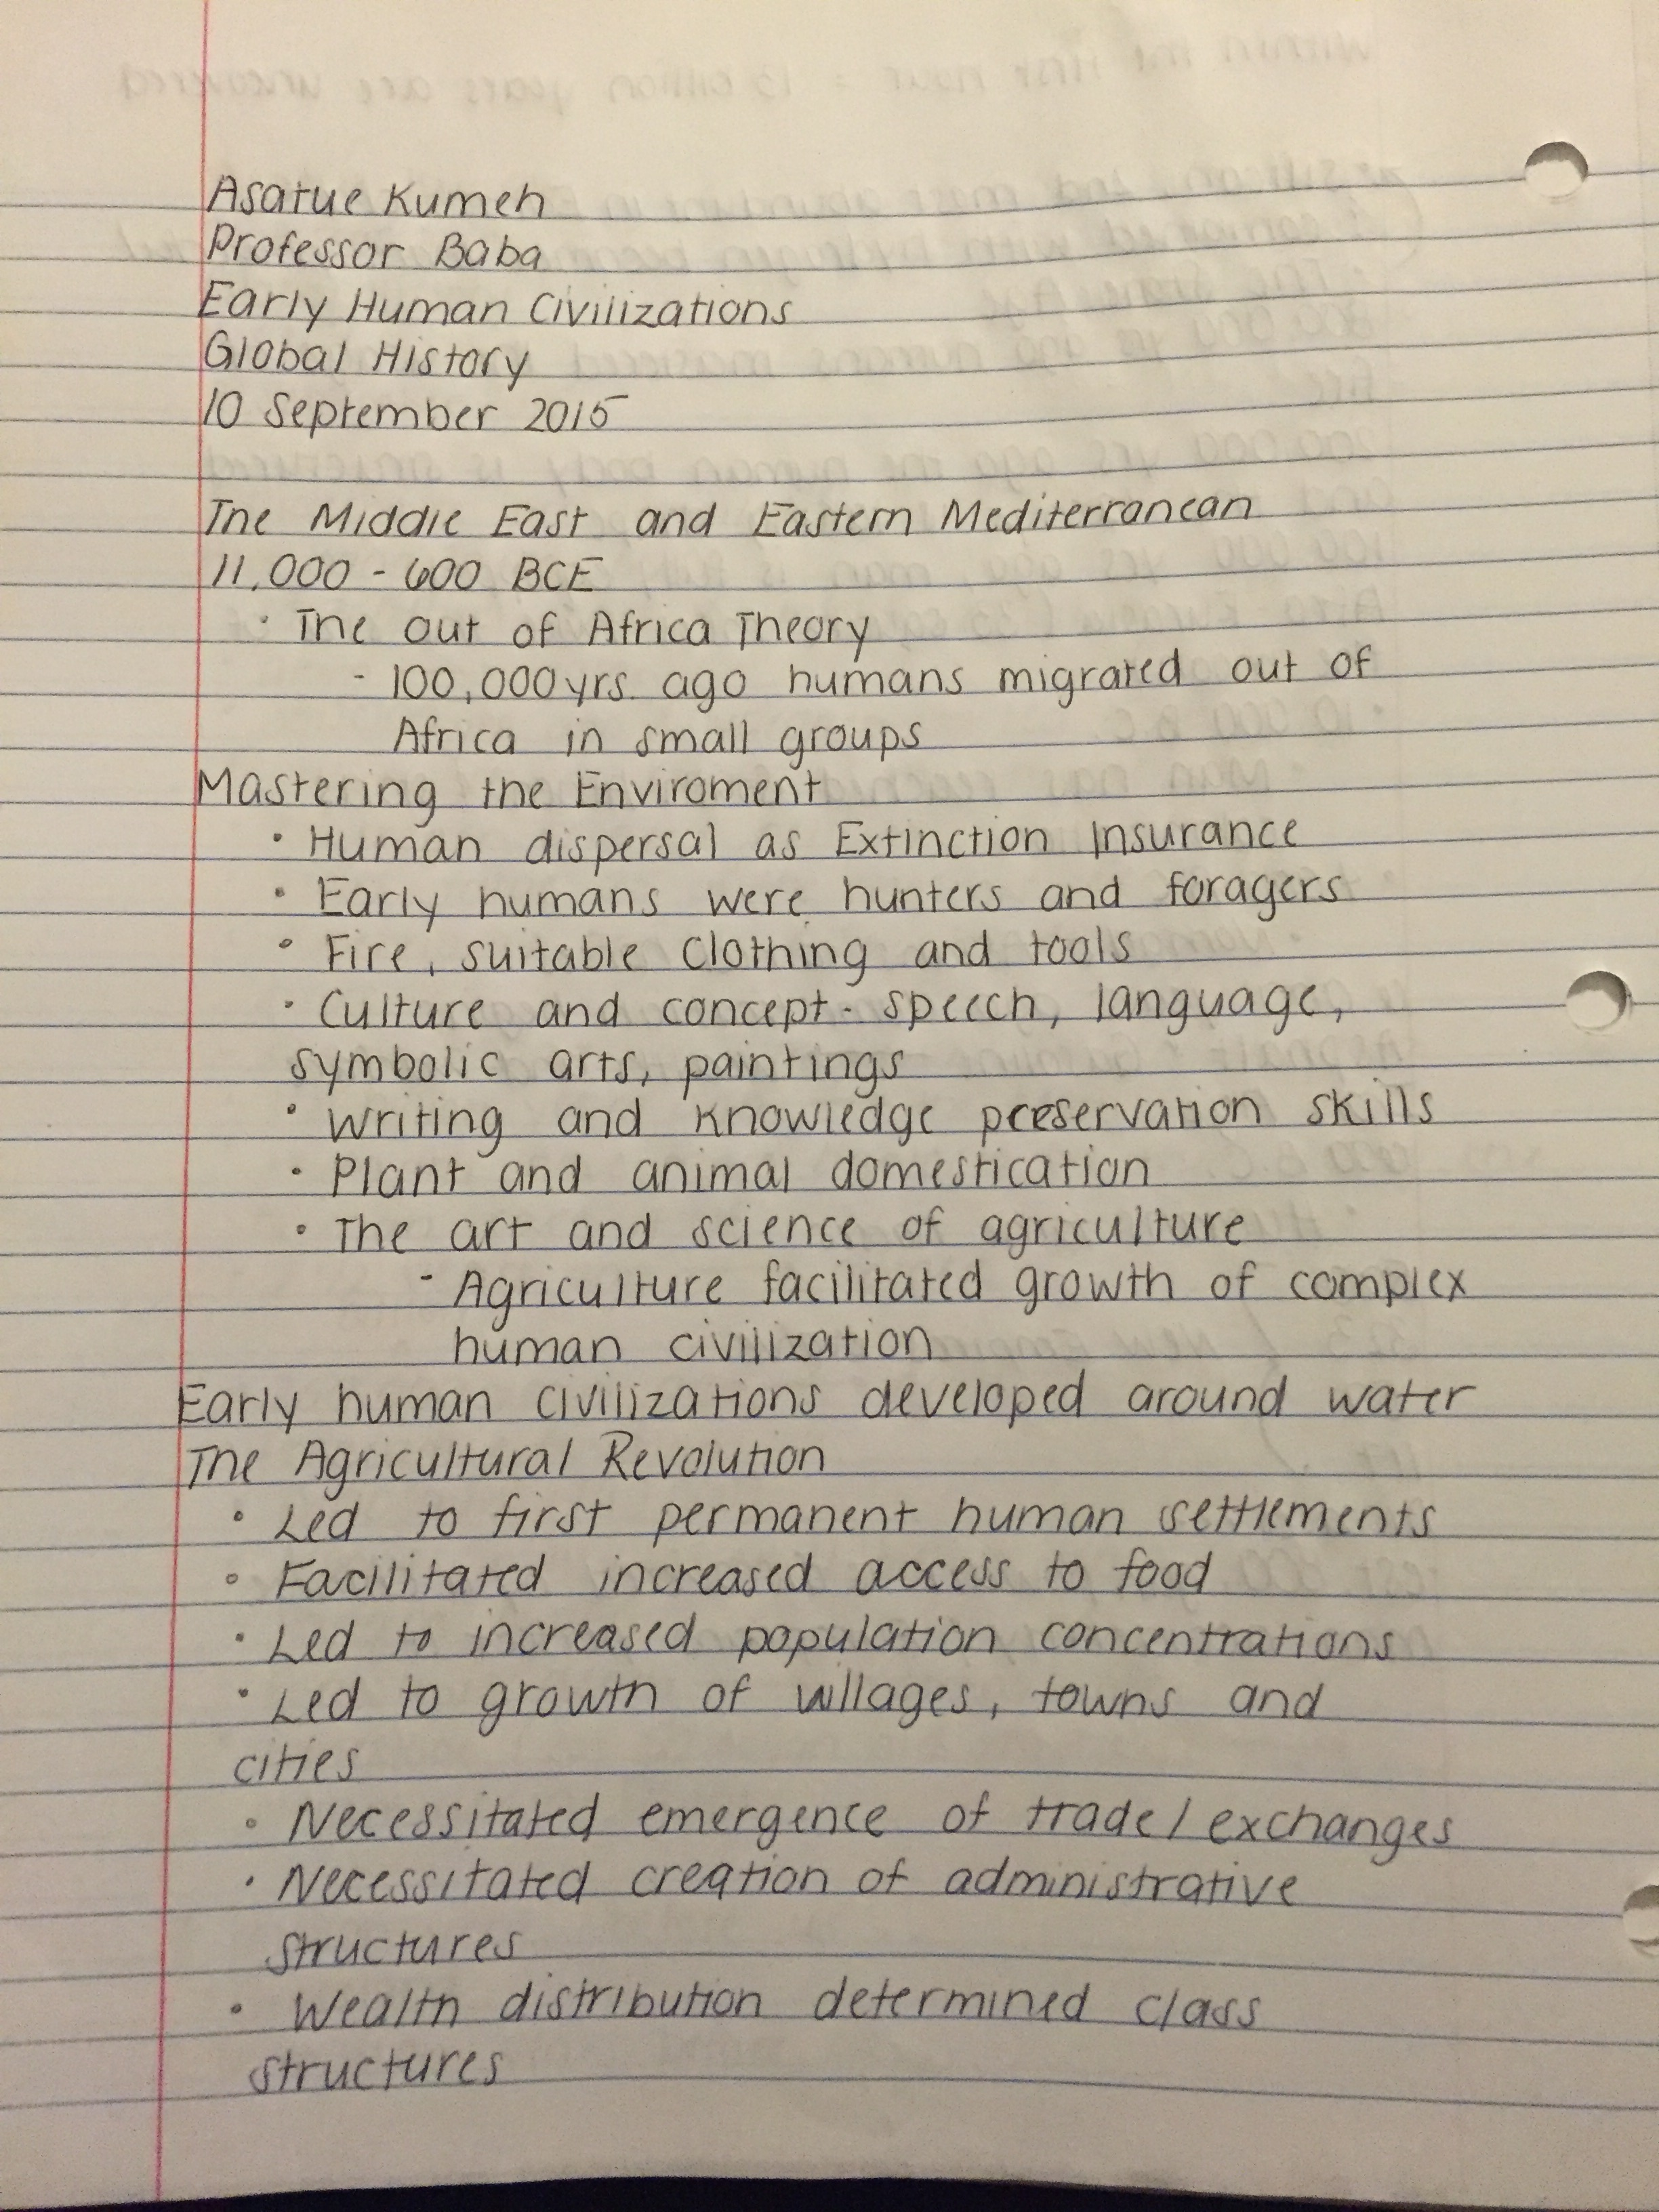 Asatue Kumeh
Professor Baba
Early Human Civilizations
Global History
10 September 2015
The Middle East and Eastern Mediterranean
11,000 - 600 BCE
· The out of Africa Theory
- 100,000 yrs. ago humans migrated out of
Africa in small groups
Mastering the Enviroment
· Human dispersal as Extinction Insurance
· Early humans were hunters and foragers
· Fire, suitable clothing and tools
· Culture and concept - speech, language,
symbolic arts, paintings
· Writing and knowledge preservation skills
· Plant and animal domestication
· The art and science of agriculture
- Agriculture facilitated growth of complex
human civilization
Early human civilizations developed around water
The Agricultural Revolution
· Led to first permanent human settlements
· Facilitated increased access to food
· Led to increased population concentrations
· Led to growth of villages, towns and
cities
· Necessitated emergence of trade/exchanges
· Necessitated creation of administrative
structures
· Wealth distribution determined class
structures